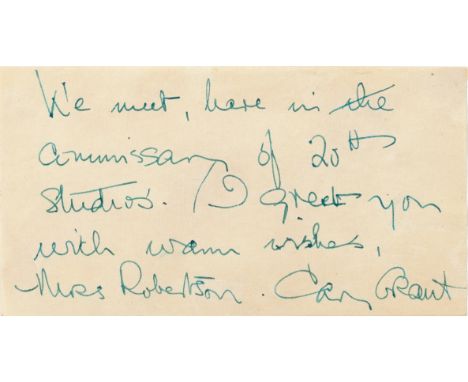 We meet, here in the
commissary of 20th
Studios. I greet you
with warm wishes,
Miss Robertson. Cary Grant